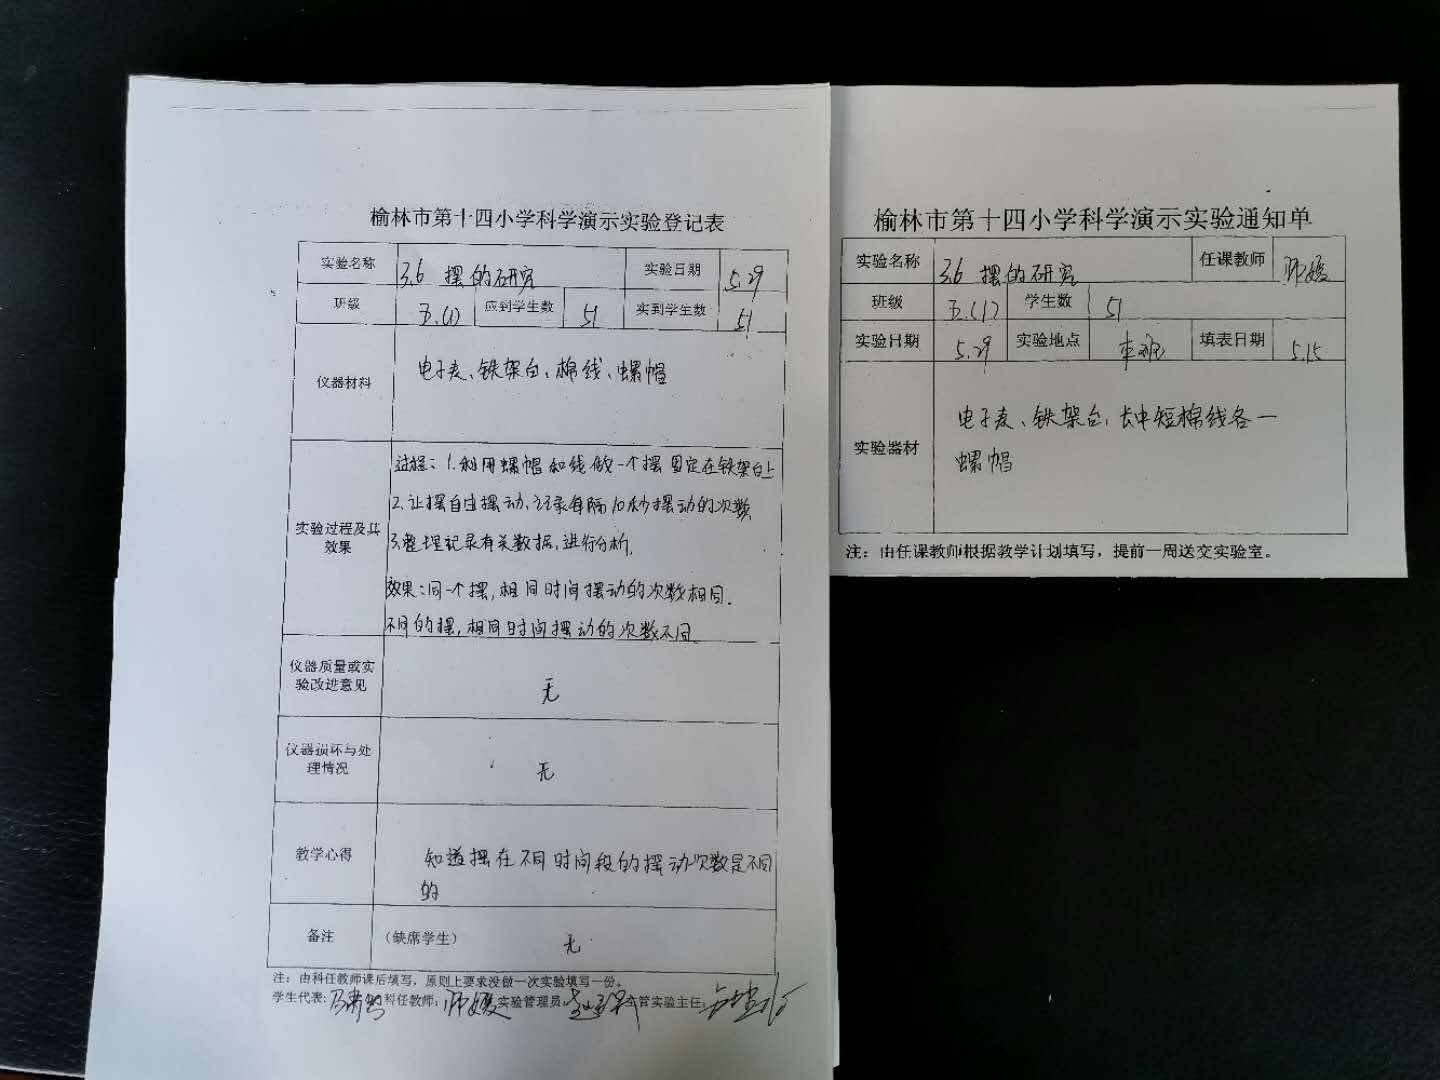 榆林市第十四小学科学演示实验登记表
实验名称 3.6 摆的研究 实验日期 5.29
班级 五.(1) 应到学生数 51 实到学生数 51
仪器材料 电子表、铁架台、棉线、螺帽
实验过程及其效果
过程：1.利用螺帽和线做一个摆固定在铁架台上
2.让摆自由摆动，记录每隔10秒摆动的次数
3.整理记录有关数据，进行分析.
效果：同一个摆，相同时间摆动的次数相同.
不同的摆，相同时间摆动的次数不同.
仪器质量或实验改进意见 无
仪器损坏与处理情况 无
教学心得 知道摆在不同时间段的摆动次数是不同
的
备注 （缺席学生） 无
注：由科任教师课后填写，原则上要求没做一次实验填写一份。
学生代表: 科任教师: 师媛 实验管理员: 主管实验主任:
榆林市第十四小学科学演示实验通知单
实验名称 3.6 摆的研究 任课教师 师媛
班级 五.(1) 学生数 51
实验日期 5.29 实验地点 本班 填表日期 5.15
实验器材 电子表、铁架台，长中短棉线各一
螺帽
注：由任课教师根据教学计划填写，提前一周送交实验室。